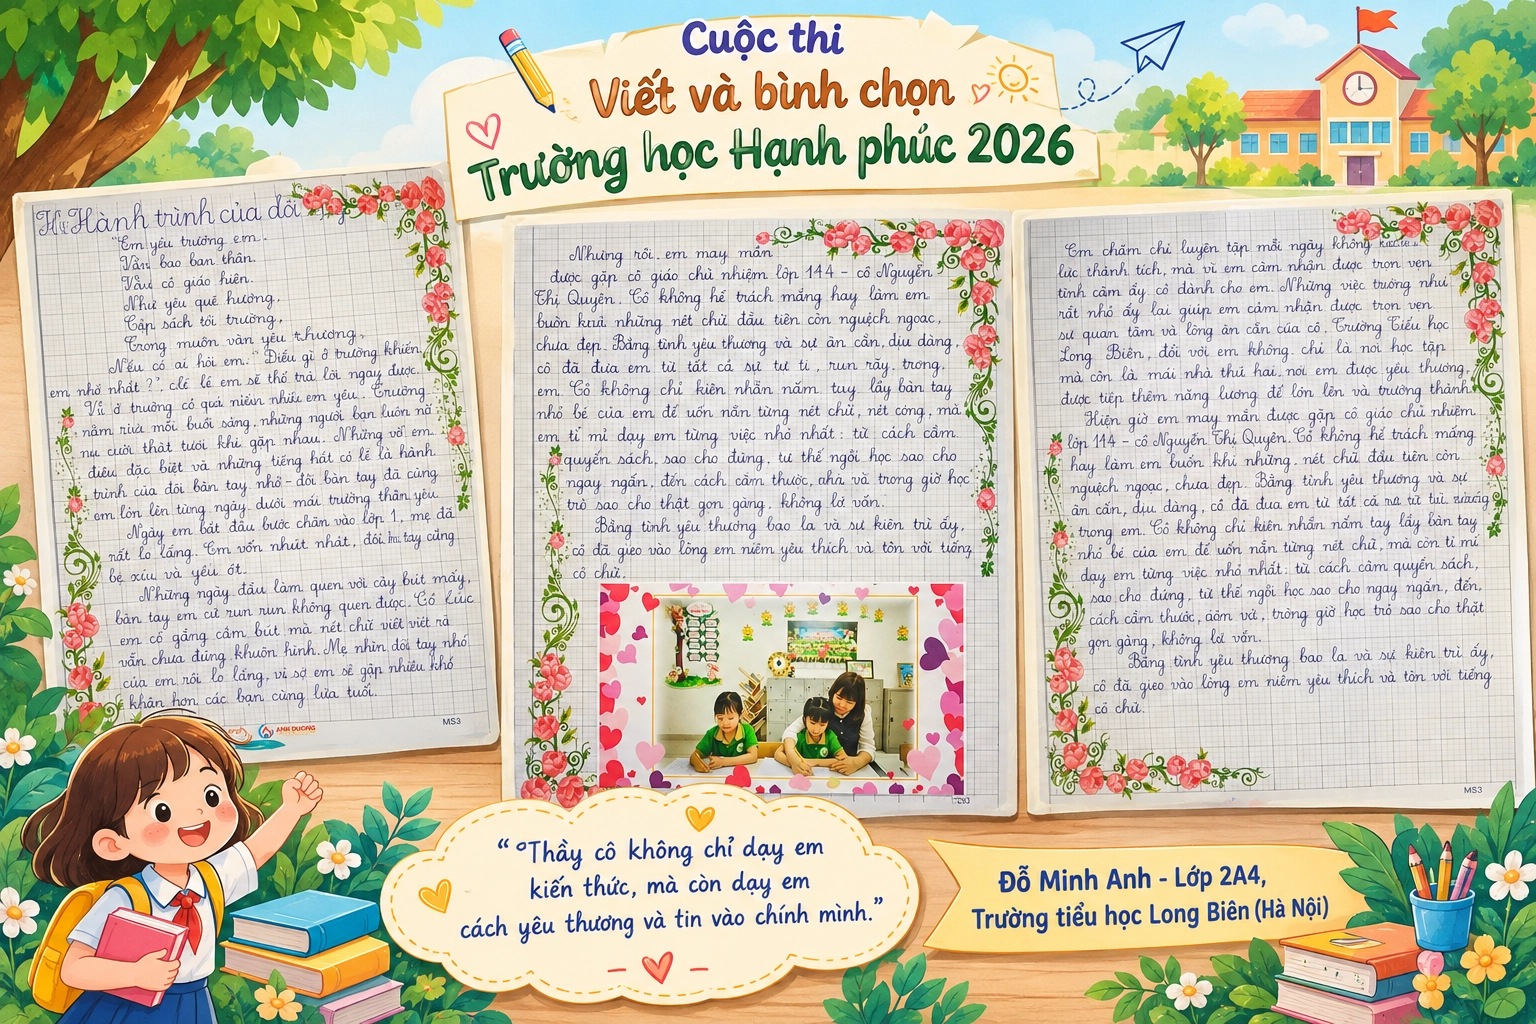 Cuộc thi
Viết và bình chọn
Trường học Hạnh phúc 2026
Hành trình của đôi
"Em yêu trường em.
Vẫn bao bạn thân.
Vẫn cô giáo hiền.
Như yêu quê hương.
Cắp sách tới trường.
Trong muôn vàn yêu thương.
Nếu có ai hỏi em: "Điều gì ở trường khiến
em nhớ nhất?", có lẽ em sẽ trả lời ngay được.
Vì ở trường có quá nhiều em yêu. Trường
nằm mỗi buổi sáng, những người bạn luôn nở
nụ cười thật tươi khi gặp nhau. Nhưng với em
điều đặc biệt và những tiếng hát có lẽ là hành
trình của đôi bàn tay nhỏ - đôi bàn tay đã cùng
em lớn lên từng ngày dưới mái trường thân yêu.
Ngày em bắt đầu bước chân vào lớp 1, mẹ đã
rất lo lắng. Em vốn nhút nhát, đôi tay cũng
bé xíu và yếu ớt.
Những ngày đầu làm quen với cây bút mấy,
bàn tay em cứ run run không quen được. Có lúc
em cố gắng cầm bút mà nét chữ viết viết ra
vẫn chưa đúng khuôn hình. Mẹ nhìn đôi tay nhỏ
của em rồi lo lắng, vì sợ em sẽ gặp nhiều khó
khăn hơn các bạn cùng lứa tuổi.
ANH DUONG
MS3
Nhưng rồi. em may mắn
được gặp cô giáo chủ nhiệm lớp 144 - cô Nguyễn
Thị Quyên. Cô không hề trách mắng hay làm em
buồn những nét chữ đầu tiên còn nguệch ngoạc,
chưa đẹp. Bằng tình yêu thương và sự ân cần, dịu dàng,
cô đã đưa em từ tất cả sự tự ti, run rẩy, trong.
em. Cô không chỉ kiên nhẫn nắm tay lấy bàn tay
nhỏ bé của em để uốn nắn từng nét chữ, nét cong, mà
em tỉ mỉ dạy em từng việc nhỏ nhất: từ cách cầm
quyển sách, sao cho đúng, tư thế ngồi học sao cho
ngay ngắn, đến cách cầm thước, và trong giờ học
trò sao cho thật gọn gàng, không là vấn.
Bằng tình yêu thương bao la và sự kiên trì ấy,
cô đã gieo vào lòng em niềm yêu thích và tôn với tiếng
cô chữ.
Em chăm chỉ luyện tập mỗi ngày không
lực thành tích, mà vì em cảm nhận được trọn vẹn
tình cảm ấy cô dành cho em. Những việc tưởng như
rất nhỏ ấy lại giúp em cảm nhận được trọn vẹn
sự quan tâm và lòng ân cần của cô. Trường Tiểu học
Long Biên, đối với em không chỉ là nơi học tập
mà còn là mái nhà thứ hai, nơi em được yêu thương,
được tiếp thêm năng lượng để lớn lên và trưởng thành.
Hiện giờ em may mắn được gặp cô giáo chủ nhiệm
lớp 144 - cô Nguyễn Thị Quyên. Cô không hề trách mắng
hay làm em buồn khi những nét chữ đầu tiên còn
nguệch ngoạc, chưa đẹp. Bằng tình yêu thương và sự
ân cần, dịu dàng, cô đã đưa em từ tất cả
trong em. Cô không chỉ kiên nhẫn nắm tay lấy bàn tay
nhỏ bé của em để uốn nắn từng nét chữ, mà còn tỉ mỉ
dạy em từng việc nhỏ nhất: từ cách cầm quyển sách,
sao cho đúng, tư thế ngồi học sao cho ngay ngắn, đến
cách cầm thước, trong giờ học trò sao cho thật
gọn gàng, không là vấn.
Bằng tình yêu thương bao la và sự kiên trì ấy,
cô đã gieo vào lòng em niềm yêu thích và tôn với tiếng
cô chữ.
MS3
" "Thầy cô không chỉ dạy em
kiến thức, mà còn dạy em
cách yêu thương và tin vào chính mình."
Đỗ Minh Anh - Lớp 2A4,
Trường tiểu học Long Biên (Hà Nội)